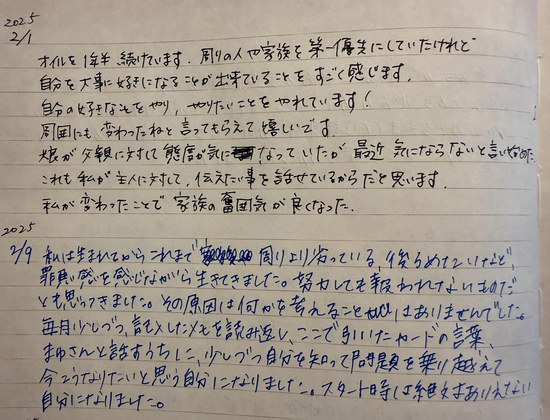 2025
2/1
オイルを1年半続けています。周りの人や家族を第一優先にしていたけれど
自分を大事に好きになることが出来ていることをすごく感じます。
自分の好きなことをやり、やりたいことをやれています!
周囲にも変わったねと言ってもらえて嬉しいです
娘が父親に対して態度が気になっていたが最近気にならないと言い始めた。
これも私が主人に対して、伝えたい事を話せているからだと思います。
私が変わったことで家族の雰囲気が良くなった。
2025
2/9 私は生まれてからこれまで周りより劣っている、後ろめたいなど、
罪悪感を感じながら生きてきました。努力しても報われないものだ
とも思ってきました。その原因は何かを考えることはありませんでした。
毎月少しづつ、記入したメモを読み返し、ここで引いたカードの言葉、
まゆさんと話すうちに、少しづつ自分を知って問題を乗り越えて
今こうなりたいと思う自分になりました。スタート時は絶対ありえない
自分になりました。